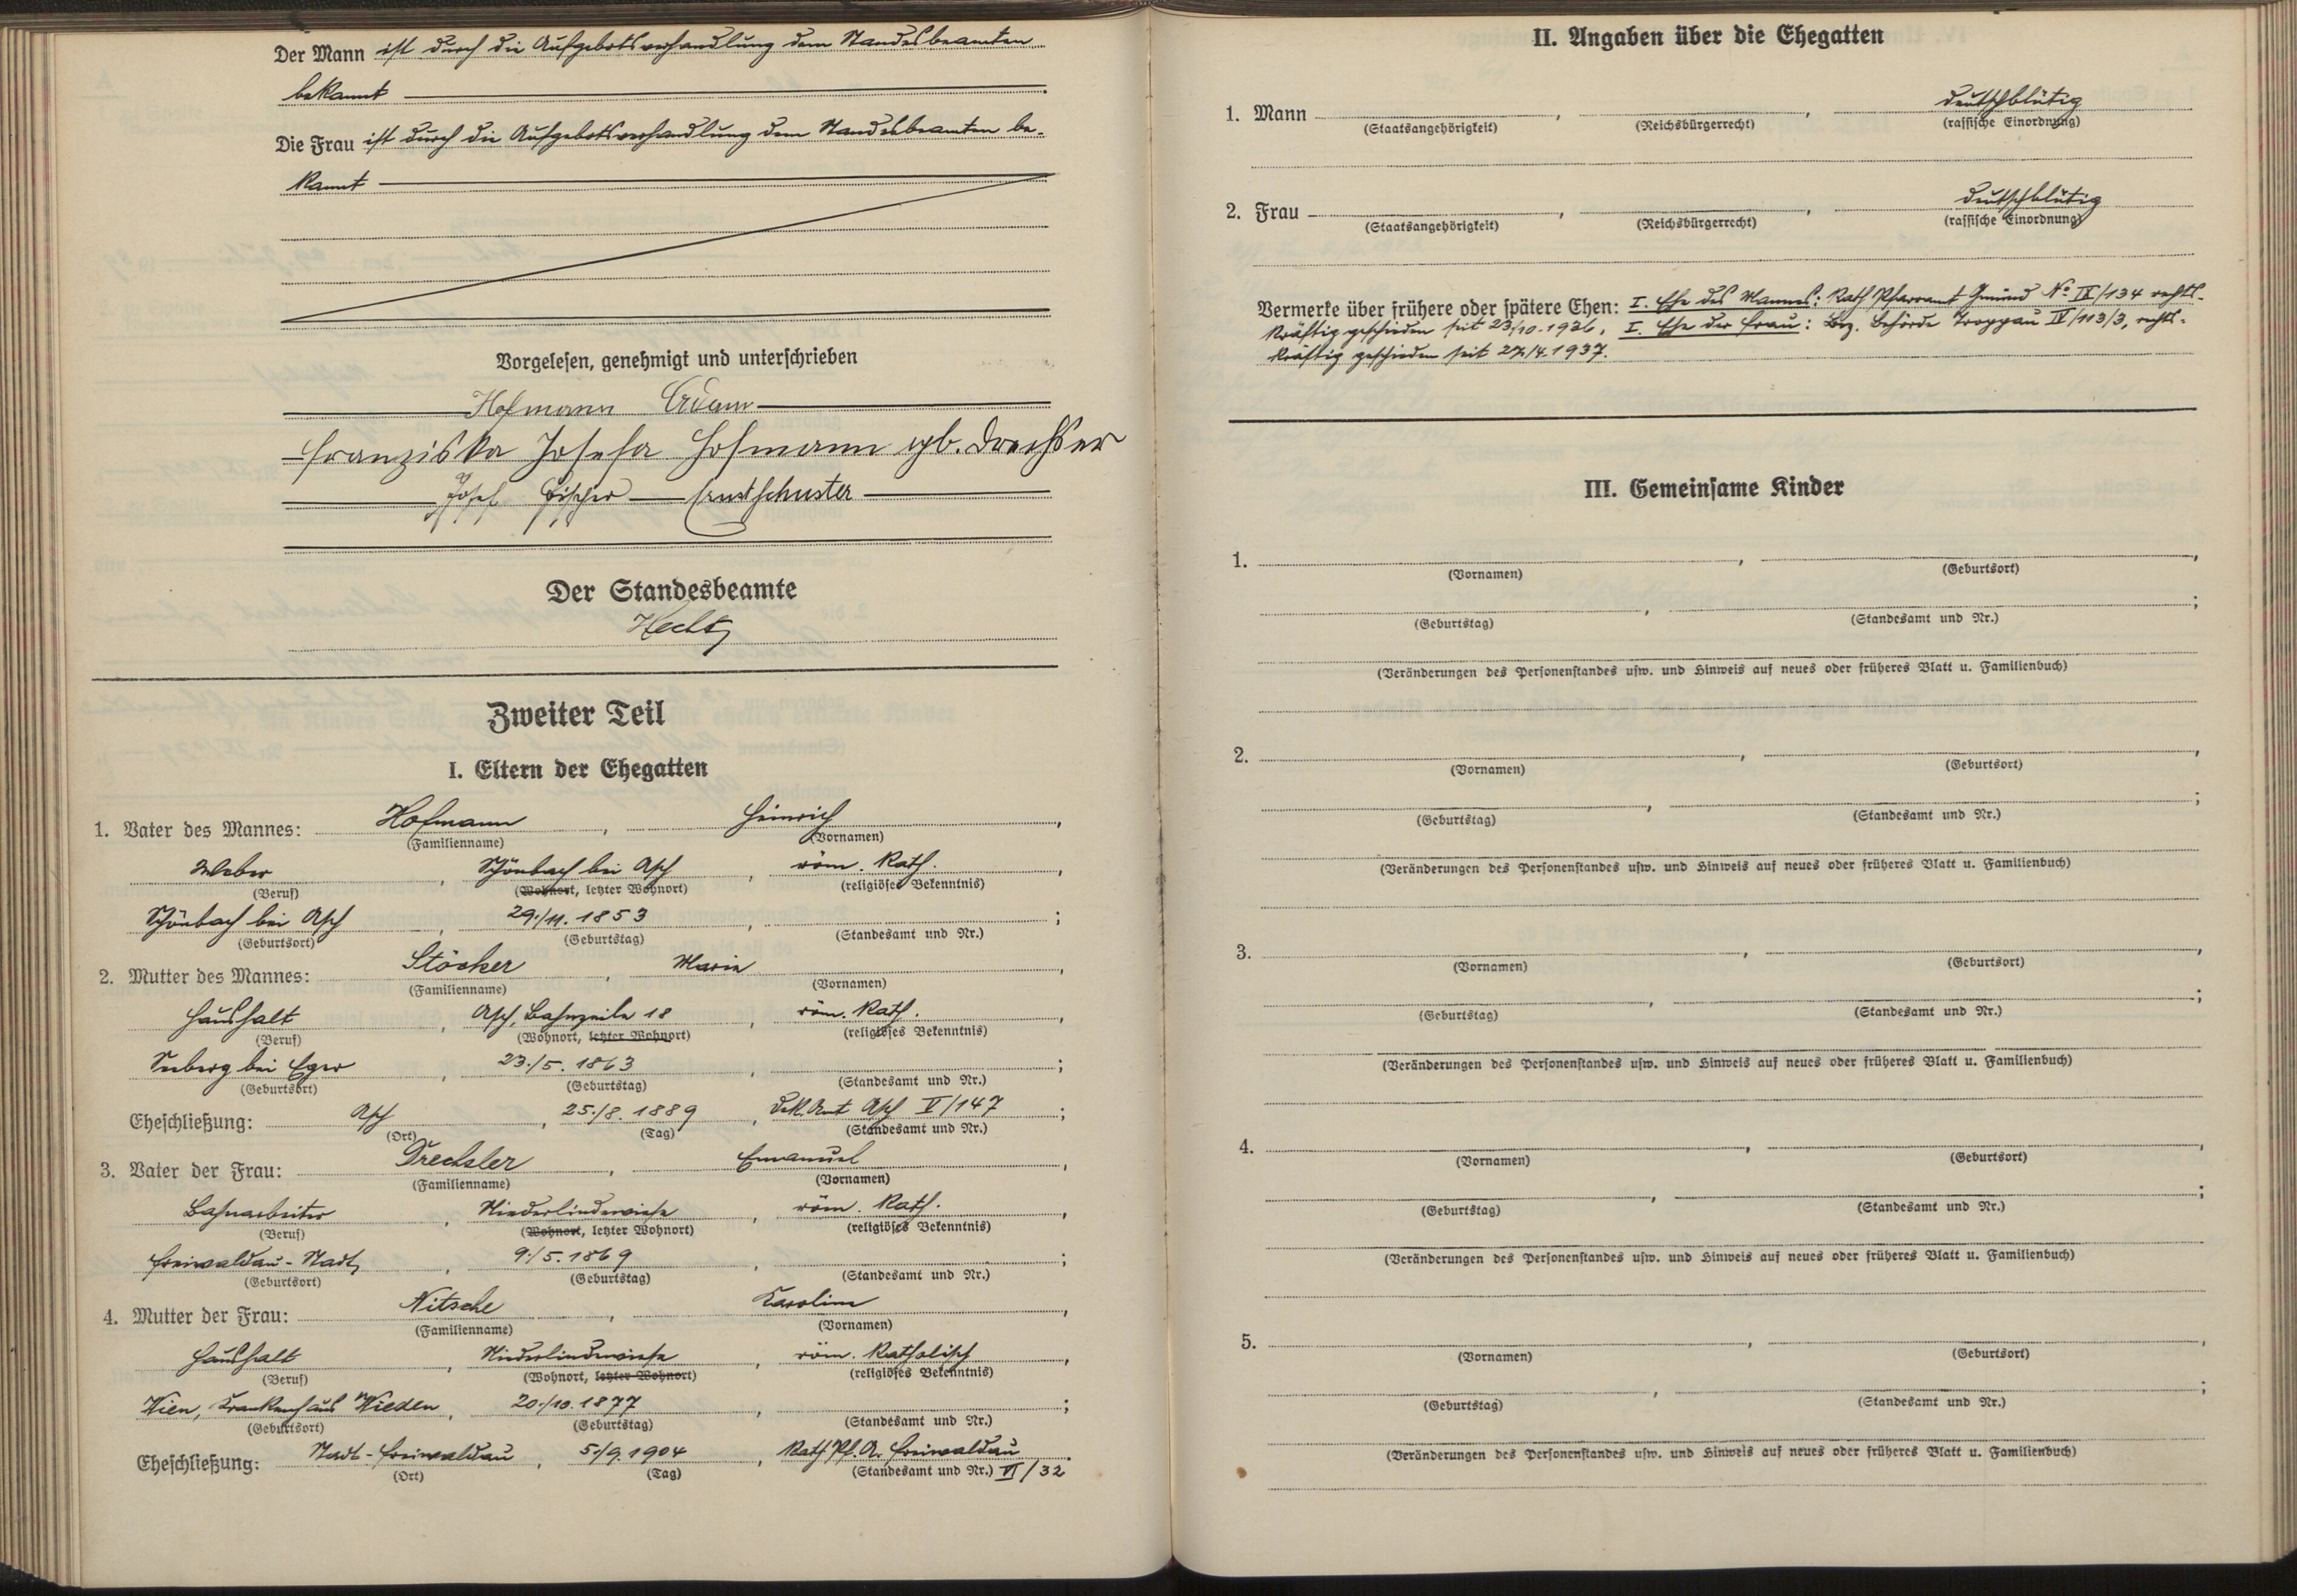 Der Mann ist durch die Aufgebotsverhandlung dem Standesbeamten
bekannt
Die Frau ist durch die Aufgebotsverhandlung dem Standesbeamten be-
kannt
Vorgelesen, genehmigt und unterschrieben
Hofmann Adam
Franziska Josefa Hofmann geb. Drechsler
Josef Fischer Ernst Schuster
Der Standesbeamte
Zweiter Teil
I. Eltern der Ehegatten
1. Vater des Mannes: Hofmann, Heinrich,
(Familienname) (Vornamen)
Weber, Schönbach bei Asch, röm. kath.,
(Beruf) (Wohnort, letzter Wohnort) (religiöses Bekenntnis)
Schönbach bei Asch, 29./11. 1853, ;
(Geburtsort) (Geburtstag) (Standesamt und Nr.)
2. Mutter des Mannes: Stöcker, Maria,
(Familienname) (Vornamen)
Haushalt, Asch, Bahnzeile 18, röm. kath.,
(Beruf) (Wohnort, letzter Wohnort) (religiöses Bekenntnis)
Seeberg bei Eger, 23./5. 1863, ;
(Geburtsort) (Geburtstag) (Standesamt und Nr.)
Eheschließung: Asch, 25./8. 1889, Dek. Amt Asch V/147;
(Ort) (Tag) (Standesamt und Nr.)
3. Vater der Frau: Drechsler, Emanuel,
(Familienname) (Vornamen)
Bahnarbeiter, Niederlindewiese, röm. kath.,
(Beruf) (Wohnort, letzter Wohnort) (religiöses Bekenntnis)
Freiwaldau-Stadt, 9./5. 1869, ;
(Geburtsort) (Geburtstag) (Standesamt und Nr.)
4. Mutter der Frau: Nitsche, Karoline,
(Familienname) (Vornamen)
Haushalt, Niederlindewiese, röm. katholisch,
(Beruf) (Wohnort, letzter Wohnort) (religiöses Bekenntnis)
Wien, Krankenhaus Wieden, 20./10. 1877, ;
(Geburtsort) (Geburtstag) (Standesamt und Nr.)
Eheschließung: Stadt-Freiwaldau, 5./9. 1904, Kath. Pf. A. Freiwaldau
(Ort) (Tag) (Standesamt und Nr.) VI/32
II. Angaben über die Ehegatten
1. Mann , , deutschblütig
(Staatsangehörigkeit) (Reichsbürgerrecht) (rassische Einordnung)
2. Frau , , deutschblütig
(Staatsangehörigkeit) (Reichsbürgerrecht) (rassische Einordnung)
Vermerke über frühere oder spätere Ehen: I. Ehe des Mannes: Kath Pfarramt No IX/134 rechts-
kräftig geschieden seit 23/10. 1936. I. Ehe der Frau: Bez. Behörde Troppau IV/113/3, rechts-
kräftig geschieden seit 27./4. 1937.
III. Gemeinsame Kinder
1. , ,
(Vornamen) (Geburtsort)
, ;
(Geburtstag) (Standesamt und Nr.)
(Veränderungen des Personenstandes usw. und Hinweis auf neues oder früheres Blatt u. Familienbuch)
2. , ,
(Vornamen) (Geburtsort)
, ;
(Geburtstag) (Standesamt und Nr.)
(Veränderungen des Personenstandes usw. und Hinweis auf neues oder früheres Blatt u. Familienbuch)
3. , ,
(Vornamen) (Geburtsort)
, ;
(Geburtstag) (Standesamt und Nr.)
(Veränderungen des Personenstandes usw. und Hinweis auf neues oder früheres Blatt u. Familienbuch)
4. , ,
(Vornamen) (Geburtsort)
, ;
(Geburtstag) (Standesamt und Nr.)
(Veränderungen des Personenstandes usw. und Hinweis auf neues oder früheres Blatt u. Familienbuch)
5. , ,
(Vornamen) (Geburtsort)
, ;
(Geburtstag) (Standesamt und Nr.)
(Veränderungen des Personenstandes usw. und Hinweis auf neues oder früheres Blatt u. Familienbuch)